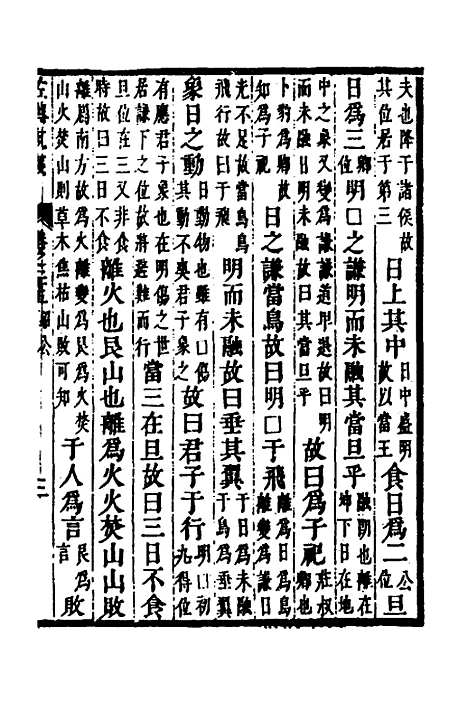 夫也降于諸侯故
其位居于第三
日上其中
日中盛明
故以當王
食日爲二
公
位
旦
日爲三
卿
位
明囗之謙明而未融其當旦乎
融朗也離在
坤下日在地
中之象又變爲謙謙道卑退故曰明
而未融日明未融故曰其當旦乎
故曰爲子祀
莊叔
卿也
卜豹爲卿故
知爲子祀
日之謙當鳥故曰明囗于飛
離爲日爲鳥
離變爲謙日
光不足故當鳥鳥
飛行故曰于飛
明而未融故曰垂其翼
于日爲未融
于鳥爲垂翼
象日之動
日動物也雖有囗傷
其動不爽君子象之
故曰君子于行
明囗初
九得位
有應君子于明傷之世
居謙下之位故將避難而行
當三在旦故曰三日不食
旦位在三又非食
時故曰三日不食
離火也艮山也離爲火火焚山山敗
離爲南方故爲火離變爲艮爲火焚
山火焚山則草木焦枯山敗可知
于人爲言
艮爲
言
敗